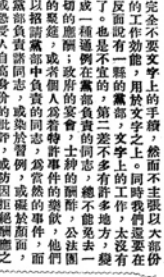 完全不要文字上的手綘，然而不主張以大部份
的工作効能，用於文字之上。同時我們還要在
反面說有一縣的黨部，文字上的工作，太沒有
了。也是不宜的，第二差不多有許多地方，變
成一種通例在黨部負責的同志，總不能免去一
切的應酬；政府的宴會，士紳的酬酢，公法團
的聚餐，或者個人爲着特許事件的變歡，他們
以招請黨部中負責的同志，爲當然的事件，而
黨部負責諸同志，或染於習例，或礙於顏面，
或恐受人自高身份的批評，或妨因拒絕酬應之